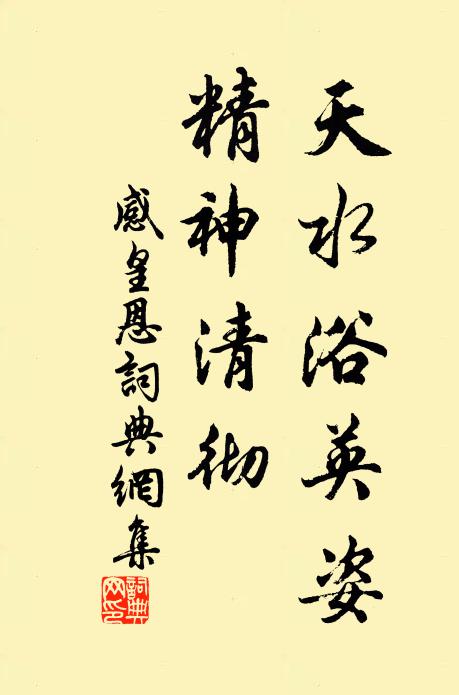 天水浴英姿
精神清彻
感皇恩詞典網集
詞典網印